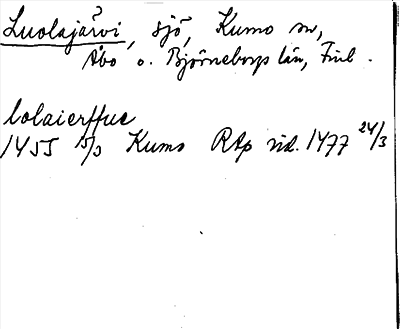 Luolajärvi, sjö, Kumo sn,
Åbo o. Björneborgs län, Finl.
lolaierffue
1455 15/3 Kumo RAp vid. 1477 24/3